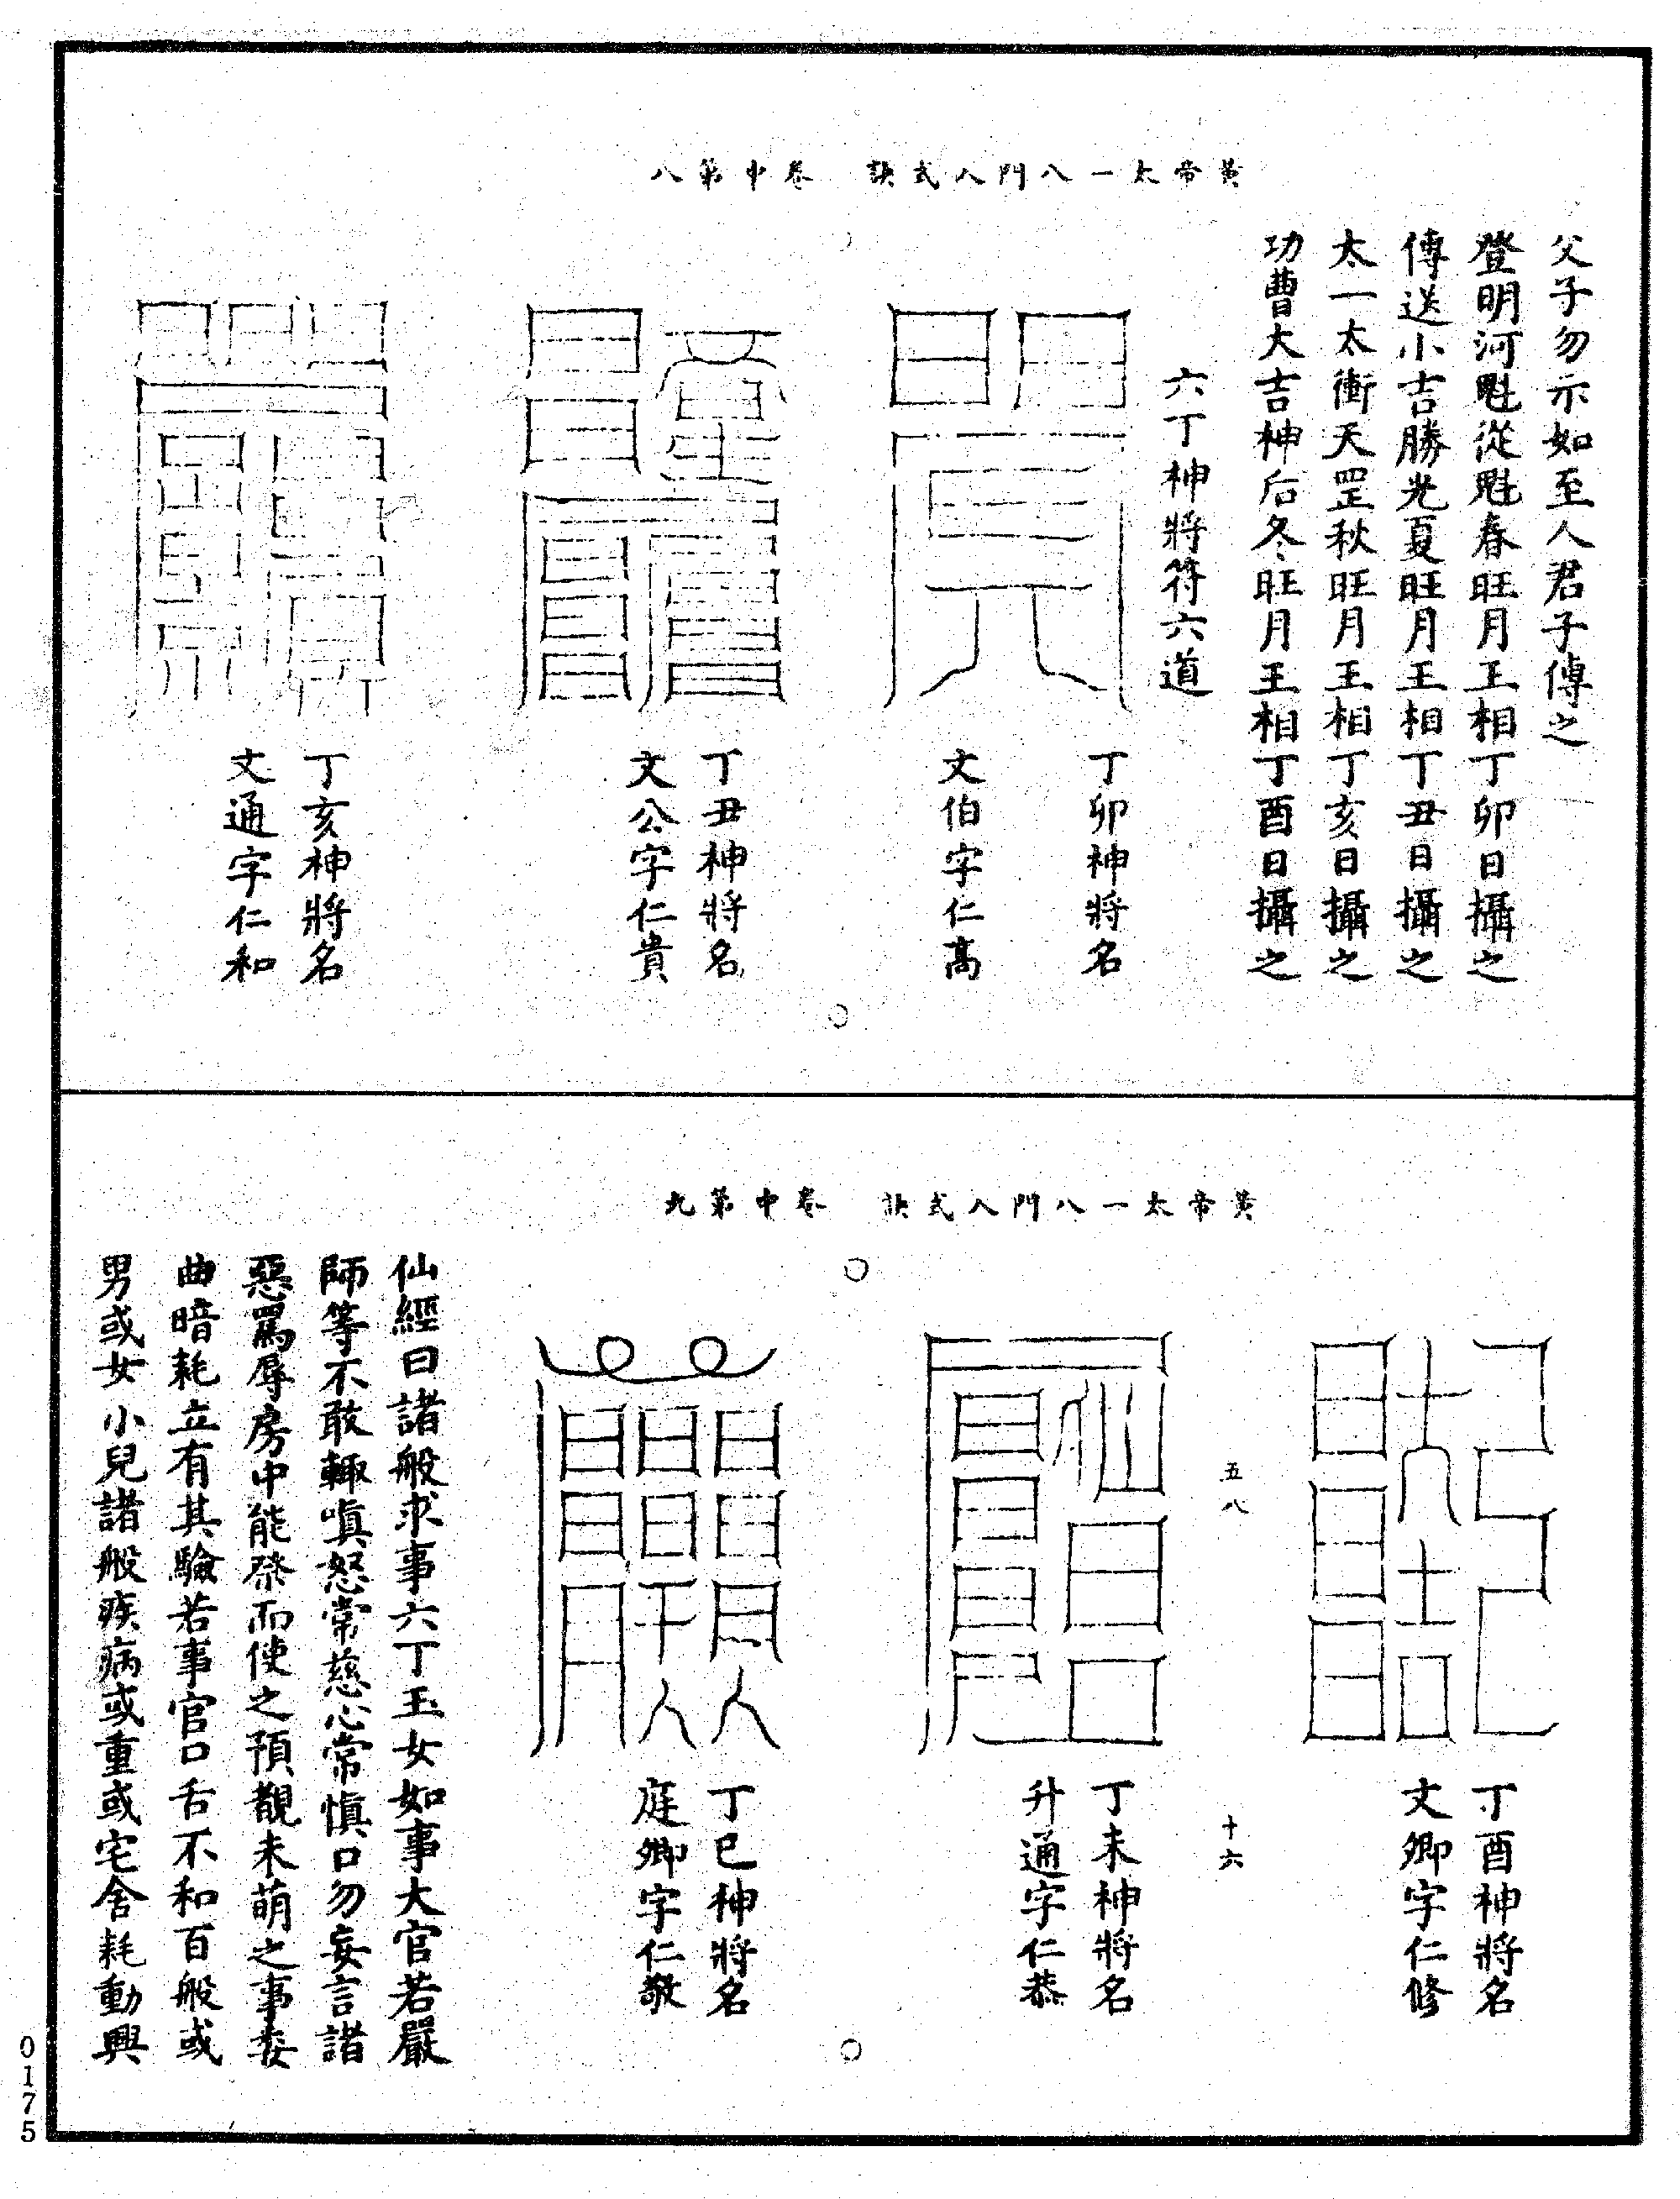 黃帝太一八門入式訣　卷中第八
父子勿示如至人君子傳之
登明河魁從魁春旺月王相丁卯日攝之
傳送小吉勝光夏旺月王相丁丑日攝之
太一太衝天罡秋旺月王相丁亥日攝之
功曹大吉神后冬旺月王相丁酉日攝之
六丁神將符六道
丁卯神將名
文伯字仁高
丁丑神將名
文公字仁貴
丁亥神將名
文通字仁和
黃帝太一八門入式訣　卷中第九
丁酉神將名
文卿字仁修
五八
十六
丁未神將名
升通字仁恭
丁巳神將名
庭卿字仁敬
仙經曰諸般求事六丁玉女如事大官若嚴
師等不敢輙嗔怒常慈心常愼口勿妄言諸
惡罵辱房中能祭而使之預覩未萌之事委
曲暗耗立有其驗若事官口舌不和百般或
男或女小兒諸般疾病或重或宅舍耗動興
0175